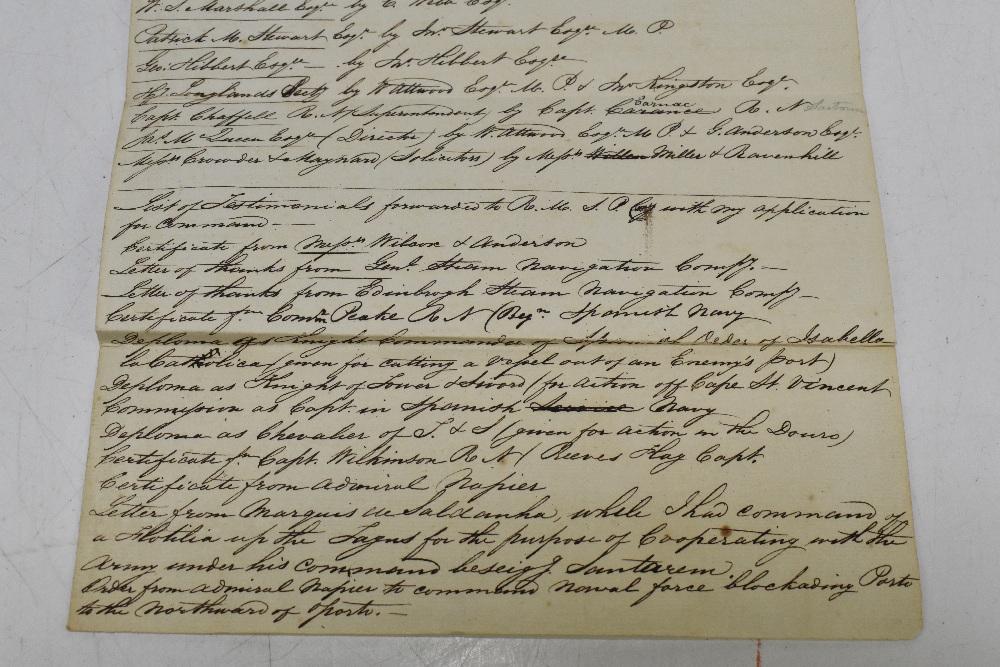 W. S. Marshall Esqre by C. Esqr
Patrick M. Stewart Esqr by Jno Stewart Esqre M. P.
Geo: Hibbert Esqre — by Jno Hibbert Esqre
Longlands by W Attwood Esqr M. P. & Jno Kingston Esqr.
Capt. Chappell R. N (Superintendent) by Capt. Carnac R. N
Jas. Mc Queen Esqre (Director) by W. Attwood Esqr M P & G. Anderson Esqr
Messrs Crowder & Maynard (Solicitors) by Messrs Miller & Ravenhill
List of Testimonials forwarded to R. M. S. P. Coy with my application
for command —
Certificate from Messrs Wilson & Anderson
Letter of thanks from Genl. Steam Navigation Compy. —
Letter of thanks from Edinbrgh Steam Navigation Compy —
Certificate fm Commr Peake R N (Spanish Navy
Deploma as Knight Commander of Spanish Order of Isabella
la Catholica (given for cutting a vessel out of an Enemy's Port)
Deploma as Knight of Tower & Sword (for action off Cape St. Vincent
Commission as Capt. in Spanish Navy
Deploma as Chevalier of T. & S (given for action in the Douro)
Certificate fm Capt. Wilkinson R N (Reeves Flag Capt.
Certificate from Admiral Napier
Letter from Marquis de Saldanha, while I had command of
a Flotilia up the Tagus for the purpose of Cooperating with the
Army under his command beseigg Santarem
Order from Admiral Napier to command Naval force blockading Ports
to the Northward of Oporto. —